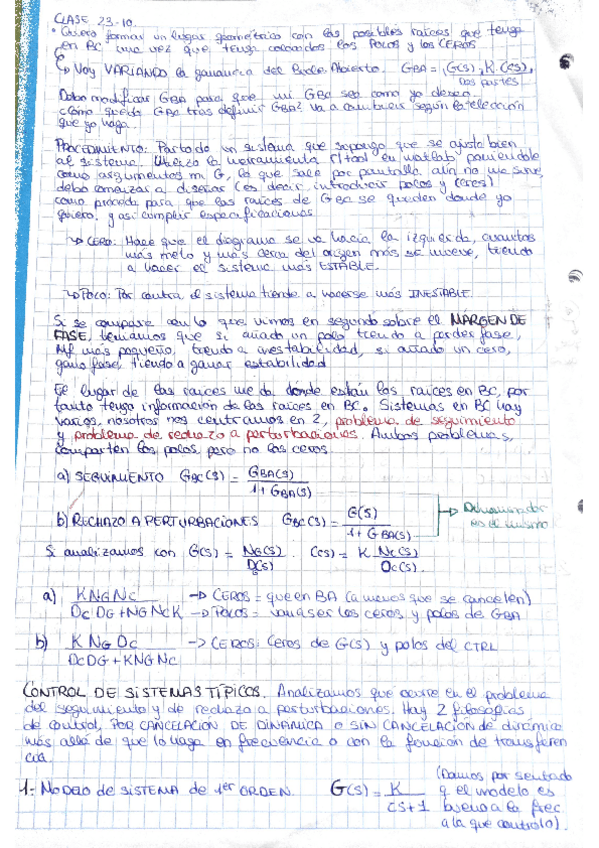 CLASE 23-10.
• Quiero formar un lugar geométrico con las posibles raíces que tenga
en BC una vez que tenga colocados los POLOS y los CEROS
↳ Voy VARIANDO la ganancia del Bucle Abierto. GBA = G(s), K. C(s),
las partes
Debo modificar GBA para que mi GBC sea como yo deseo.
¿Cómo queda GBC tras definir GBA? Va a cambiar según la elección
que yo haga.
PROCEDIMIENTO: Parto de un sistema que supongo que se ajusta bien
al sistema. Utilizo la herramienta rltool en matlab poniéndole
como argumentos mi G, lo que sale por pantalla aún no me sirve,
debo comenzar a diseñar (es decir, introducir polos y ceros)
como proceda para que las raíces de GBA se queden donde yo
quiero, y así cumplir especificaciones
↳ CERO: Hace que el diagrama se va hacia la izquierda, cuantos
más meto y más cerca del origen más se mueve, tiendo
a hacer el sistema más ESTABLE.
↳ POLO: Por contra el sistema tiende a hacerse más INESTABLE.
Si se compara con lo que vimos en segundo sobre el MARGEN DE
FASE, teníamos que si añado un polo tiendo a perder fase,
MF más pequeño, tiendo a inestabilidad, si añado un cero,
gano fase, tiendo a ganar estabilidad
El lugar de las raíces me da donde están las raíces en BC, por
tanto tengo información de las raíces en BC. Sistemas en BC hay
varios, nosotros nos centramos en 2, problema de seguimiento
y problema de rechazo a perturbaciones. Ambos problemas,
comparten los polos, pero no los ceros.
a) SEGUIMIENTO GBC(s) = GBA(s) / 1 + GBA(s)
b) RECHAZO A PERTURBACIONES GBC(s) = G(s) / 1 + GBA(s) → Denominador
es el mismo
Si analizamos con G(s) = NG(s) / DG(s). C(s) = K NC(s) / DC(s).
a) KNGNC / DCDG + NGNCK → CEROS = que en BA (a menos que se cancelen)
→ POLOS = van a ser los ceros y polos de GBA
b) K NG DC / DCDG + KNGNC → CEROS: Ceros de G(s) y polos del CTRL
CONTROL DE SISTEMAS TÍPICOS. Analizamos que ocurre en el problema
del seguimiento y de rechazo a perturbaciones. Hay 2 filosofías
de control, POR CANCELACIÓN DE DINÁMICA o SIN CANCELACIÓN de dinámica
más allá de que lo haga en frecuencia o con la función de transferen
cia.
1.- MODELO DE SISTEMA DE 1er ORDEN. G(s) = K / cs+1 (Damos por sentado
q el modelo es
bueno a la frec.
a la que controlo).